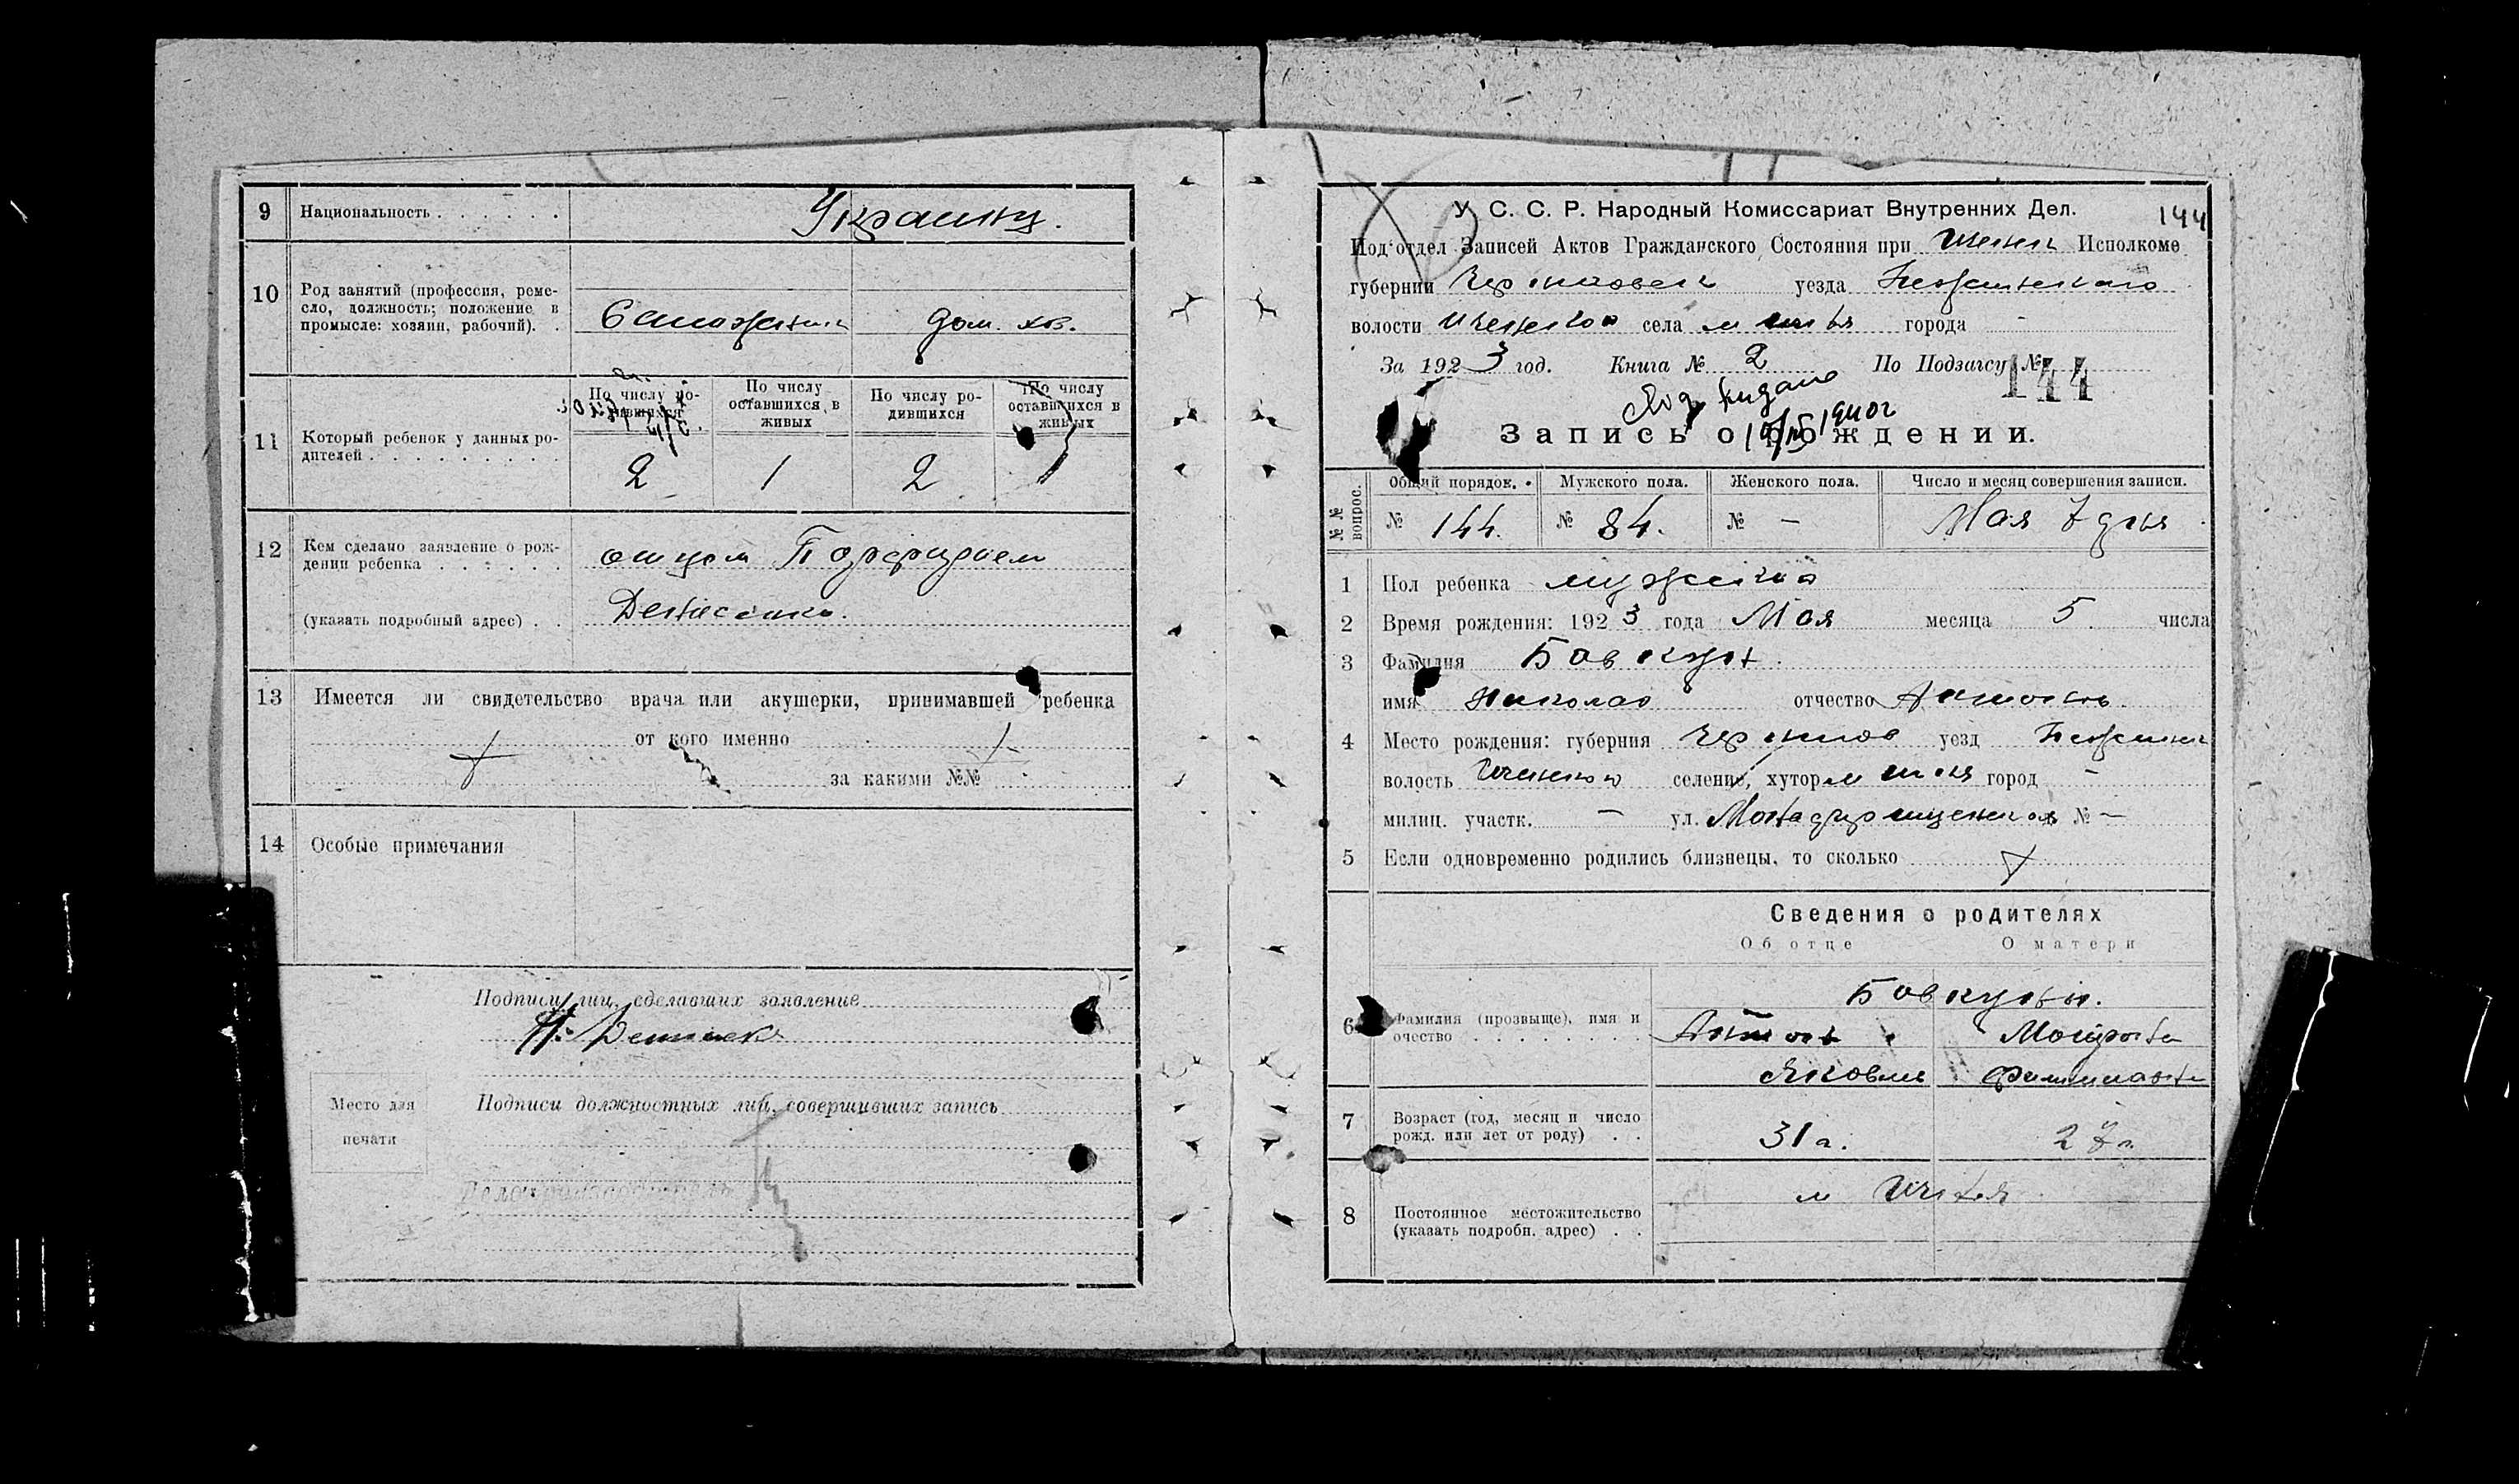 9 Национальность . . . . . . Украинц.
10 Род занятий (профессия, реме-
сло, должность; положение в
промысле: хозяин, рабочий). . Сапожник дом. хоз.
По числу ро-
дившихся По числу
оставшихся в
живых По числу ро-
дившихся По числу
оставшихся в
живых
11 Который ребенок у данных ро-
дителей . . . . . . . . . 2 1 2 1
12 Кем сделано заявление о рож-
дении ребенка . . . . . . отцом Порфирием
(указать подробный адрес) . . Денисенко.
13 Имеется ли свидетельство врача или акушерки, принимавшей ребенка
от кого именно
за какими №№
14 Особые примечания
Подписи лиц, сделавших заявление
Подписи должностных лиц, совершивших запись
Место для
печати
Делопроизводитель
У. С. С. Р. Народный Комиссариат Внутренних Дел. 144
Под‘отдел Записей Актов Гражданского Состояния при Ичнян Исполкоме
губернии Черниговск уезда Нежинского
волости Ичнянской села м Ичня города -
За 1923 год. Книга № 2 По Подзагсу № 144
Записьㅤо рождении.
№№ вопрос. Общий порядок. Мужского пола. Женского пола. Число и месяц совершения записи.
№ 144. № 84. № - Мая 7 дня
1 Пол ребенка мужской
2 Время рождения: 1923 года Мая месяца 5 числа
3 Фамилия Бовкун.
имя Николай отчество Антонов.
4 Место рождения: губерния Чернигов уезд Нежинск
волость Ичнянской селение, хутор м Ичня город -
милиц. участк. - ул. № -
5 Если одновременно родились близнецы, то сколько
Сведения о родителях
Об отце О матери
Бовкуны.
6 Фамилия (прозвыще), имя и
очество . . . . . . . . Антон Мотрона
Яковлев
7 Возраст (год, месяц и число
рожд. или лет от роду) . . 31 л. 27 л
м Ичня
8 Постоянное местожительство
(указать подробн. адрес) . .